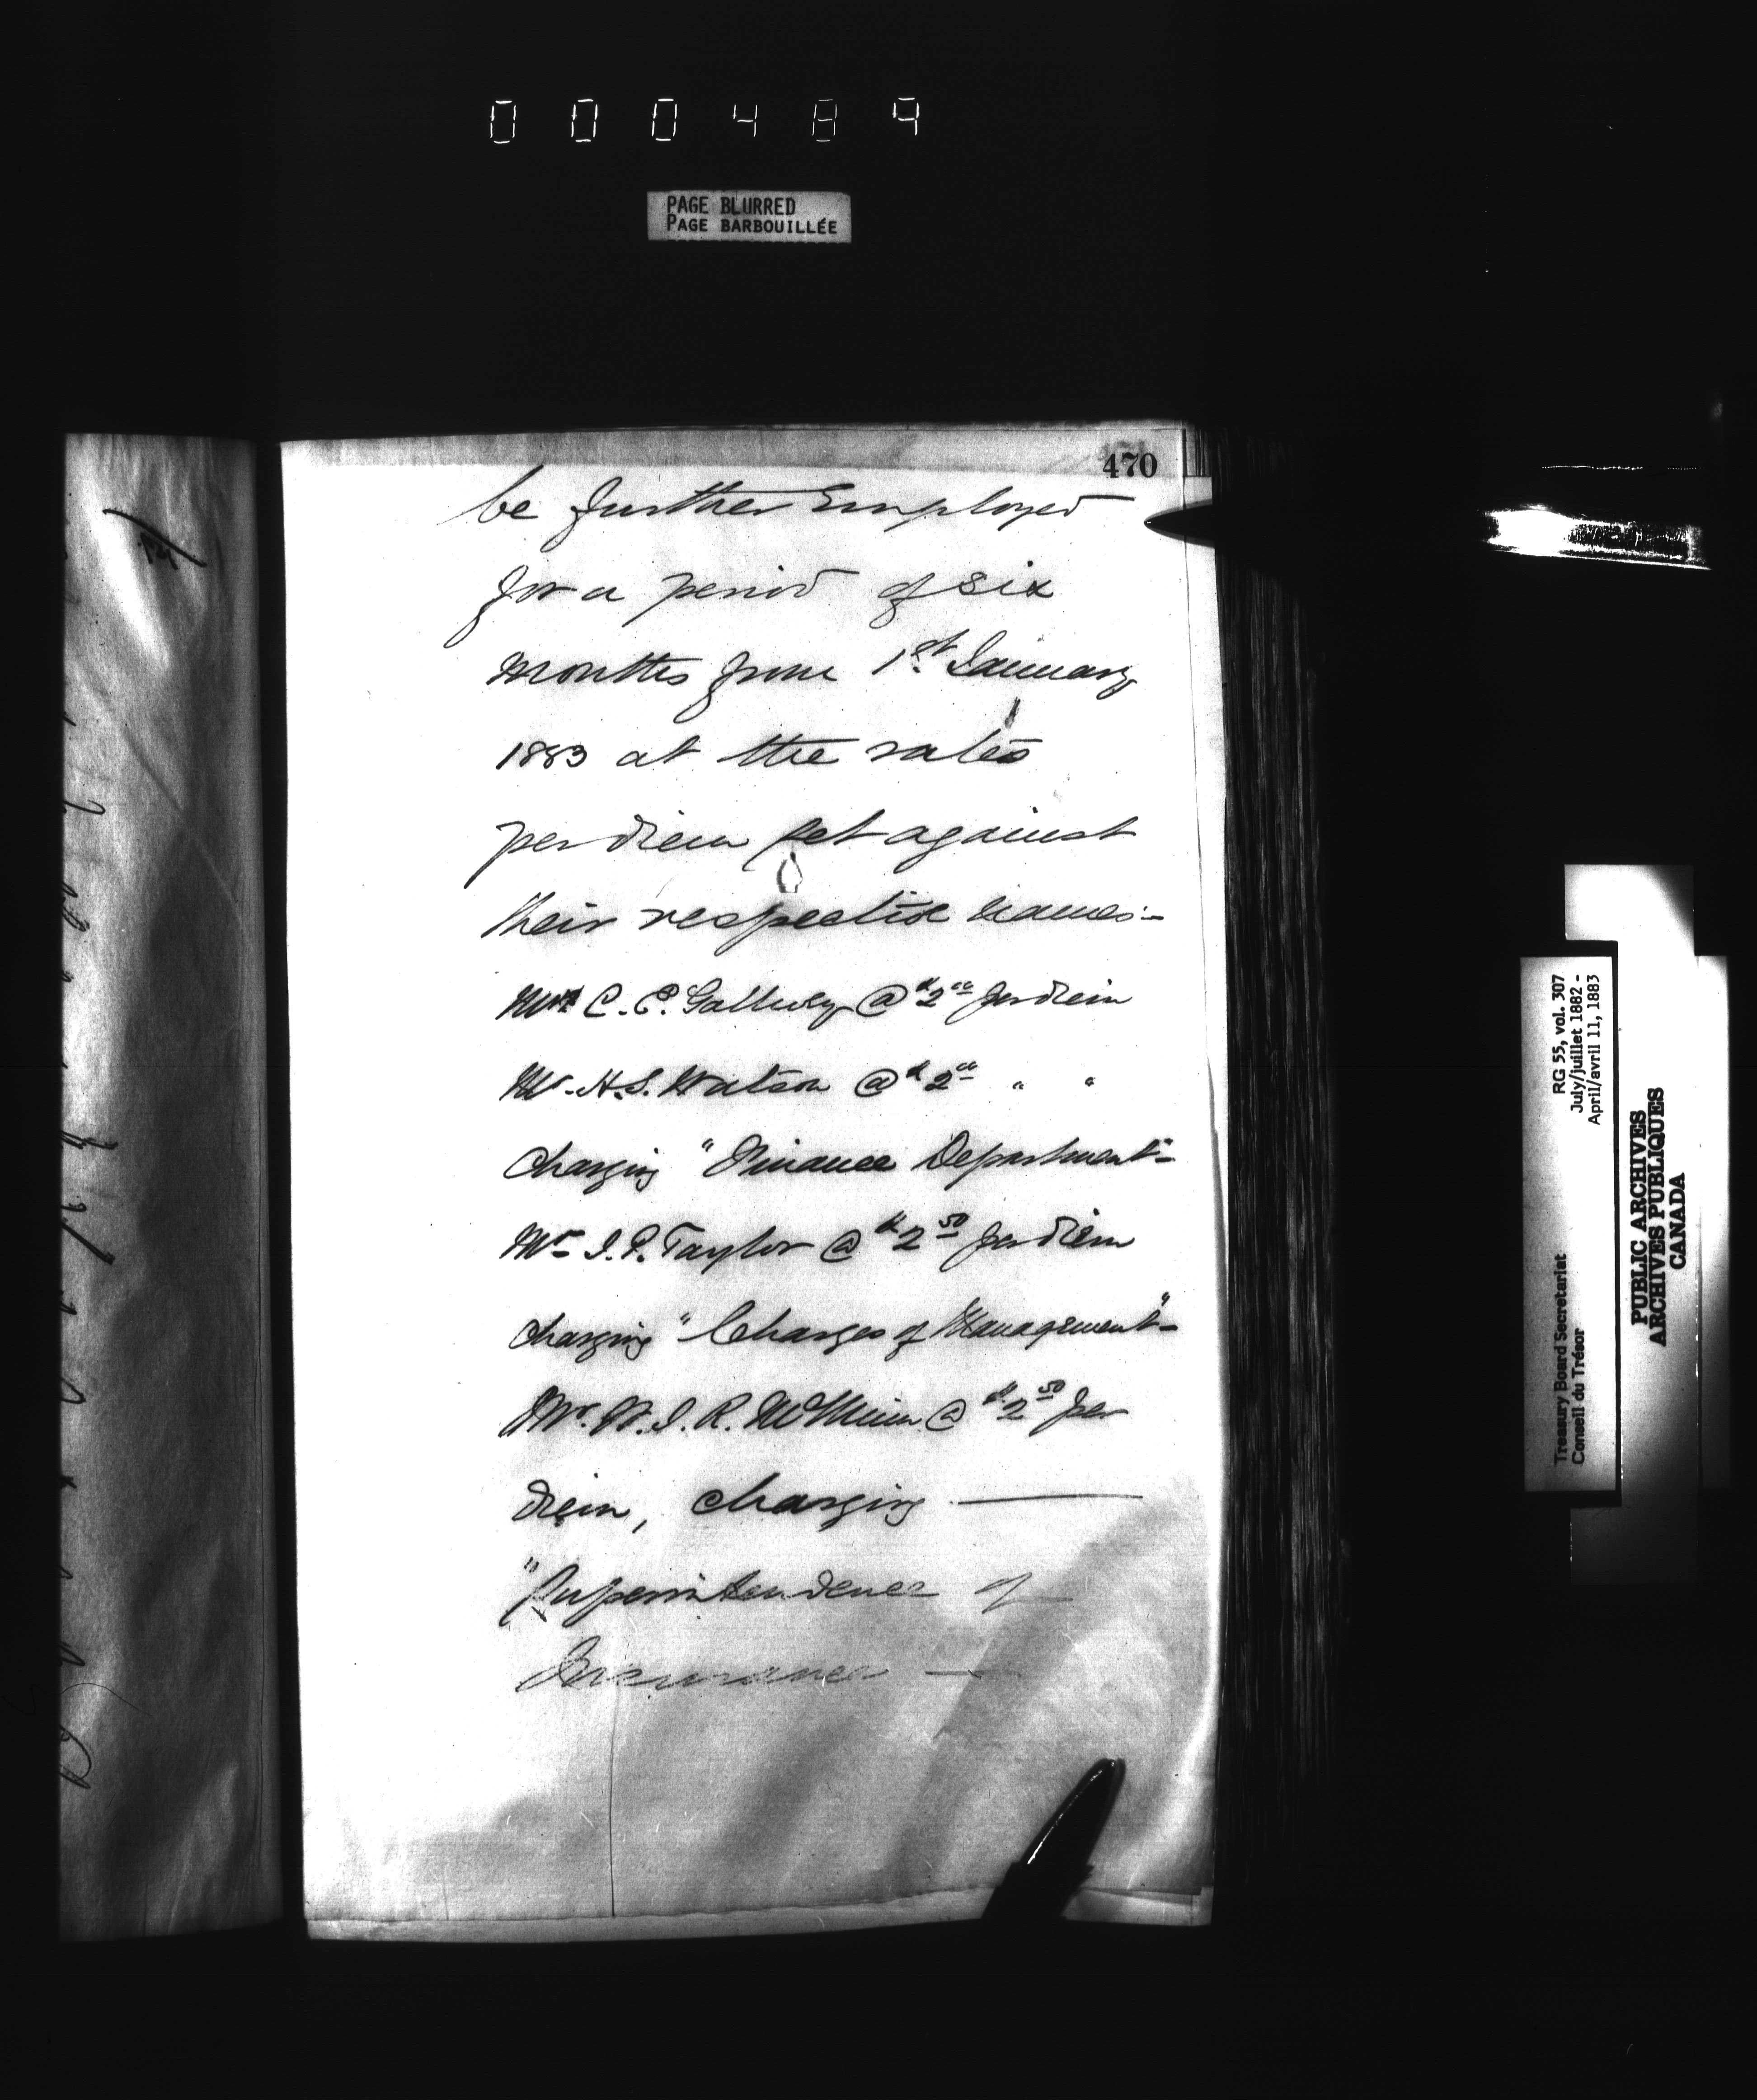 000489
PAGE BLURRED
PAGE BARBOUILLÉE
470
be further Employed
for a period of six
Months from 1st January
1883 at the rates
per diem set against
their respective names:-
Mr C. E. Gallwey @ $2 00 per diem
Mr. H. S. Watson @ $2 00 " "
Charging "Finance Department"-
Mr J. P. Taylor @ $2 50 per diem
charging "Charges of Management"-
Mr. W. J. R. @ $2 50 per
diem, charging
"Superintendence of
Insurance —
RG 55, vol. 307
July/juillet 1882 -
April/avril 11, 1883
Treasury Board Secretariat
Conseil du Trésor
PUBLIC ARCHIVES
ARCHIVES PUBLIQUES
CANADA